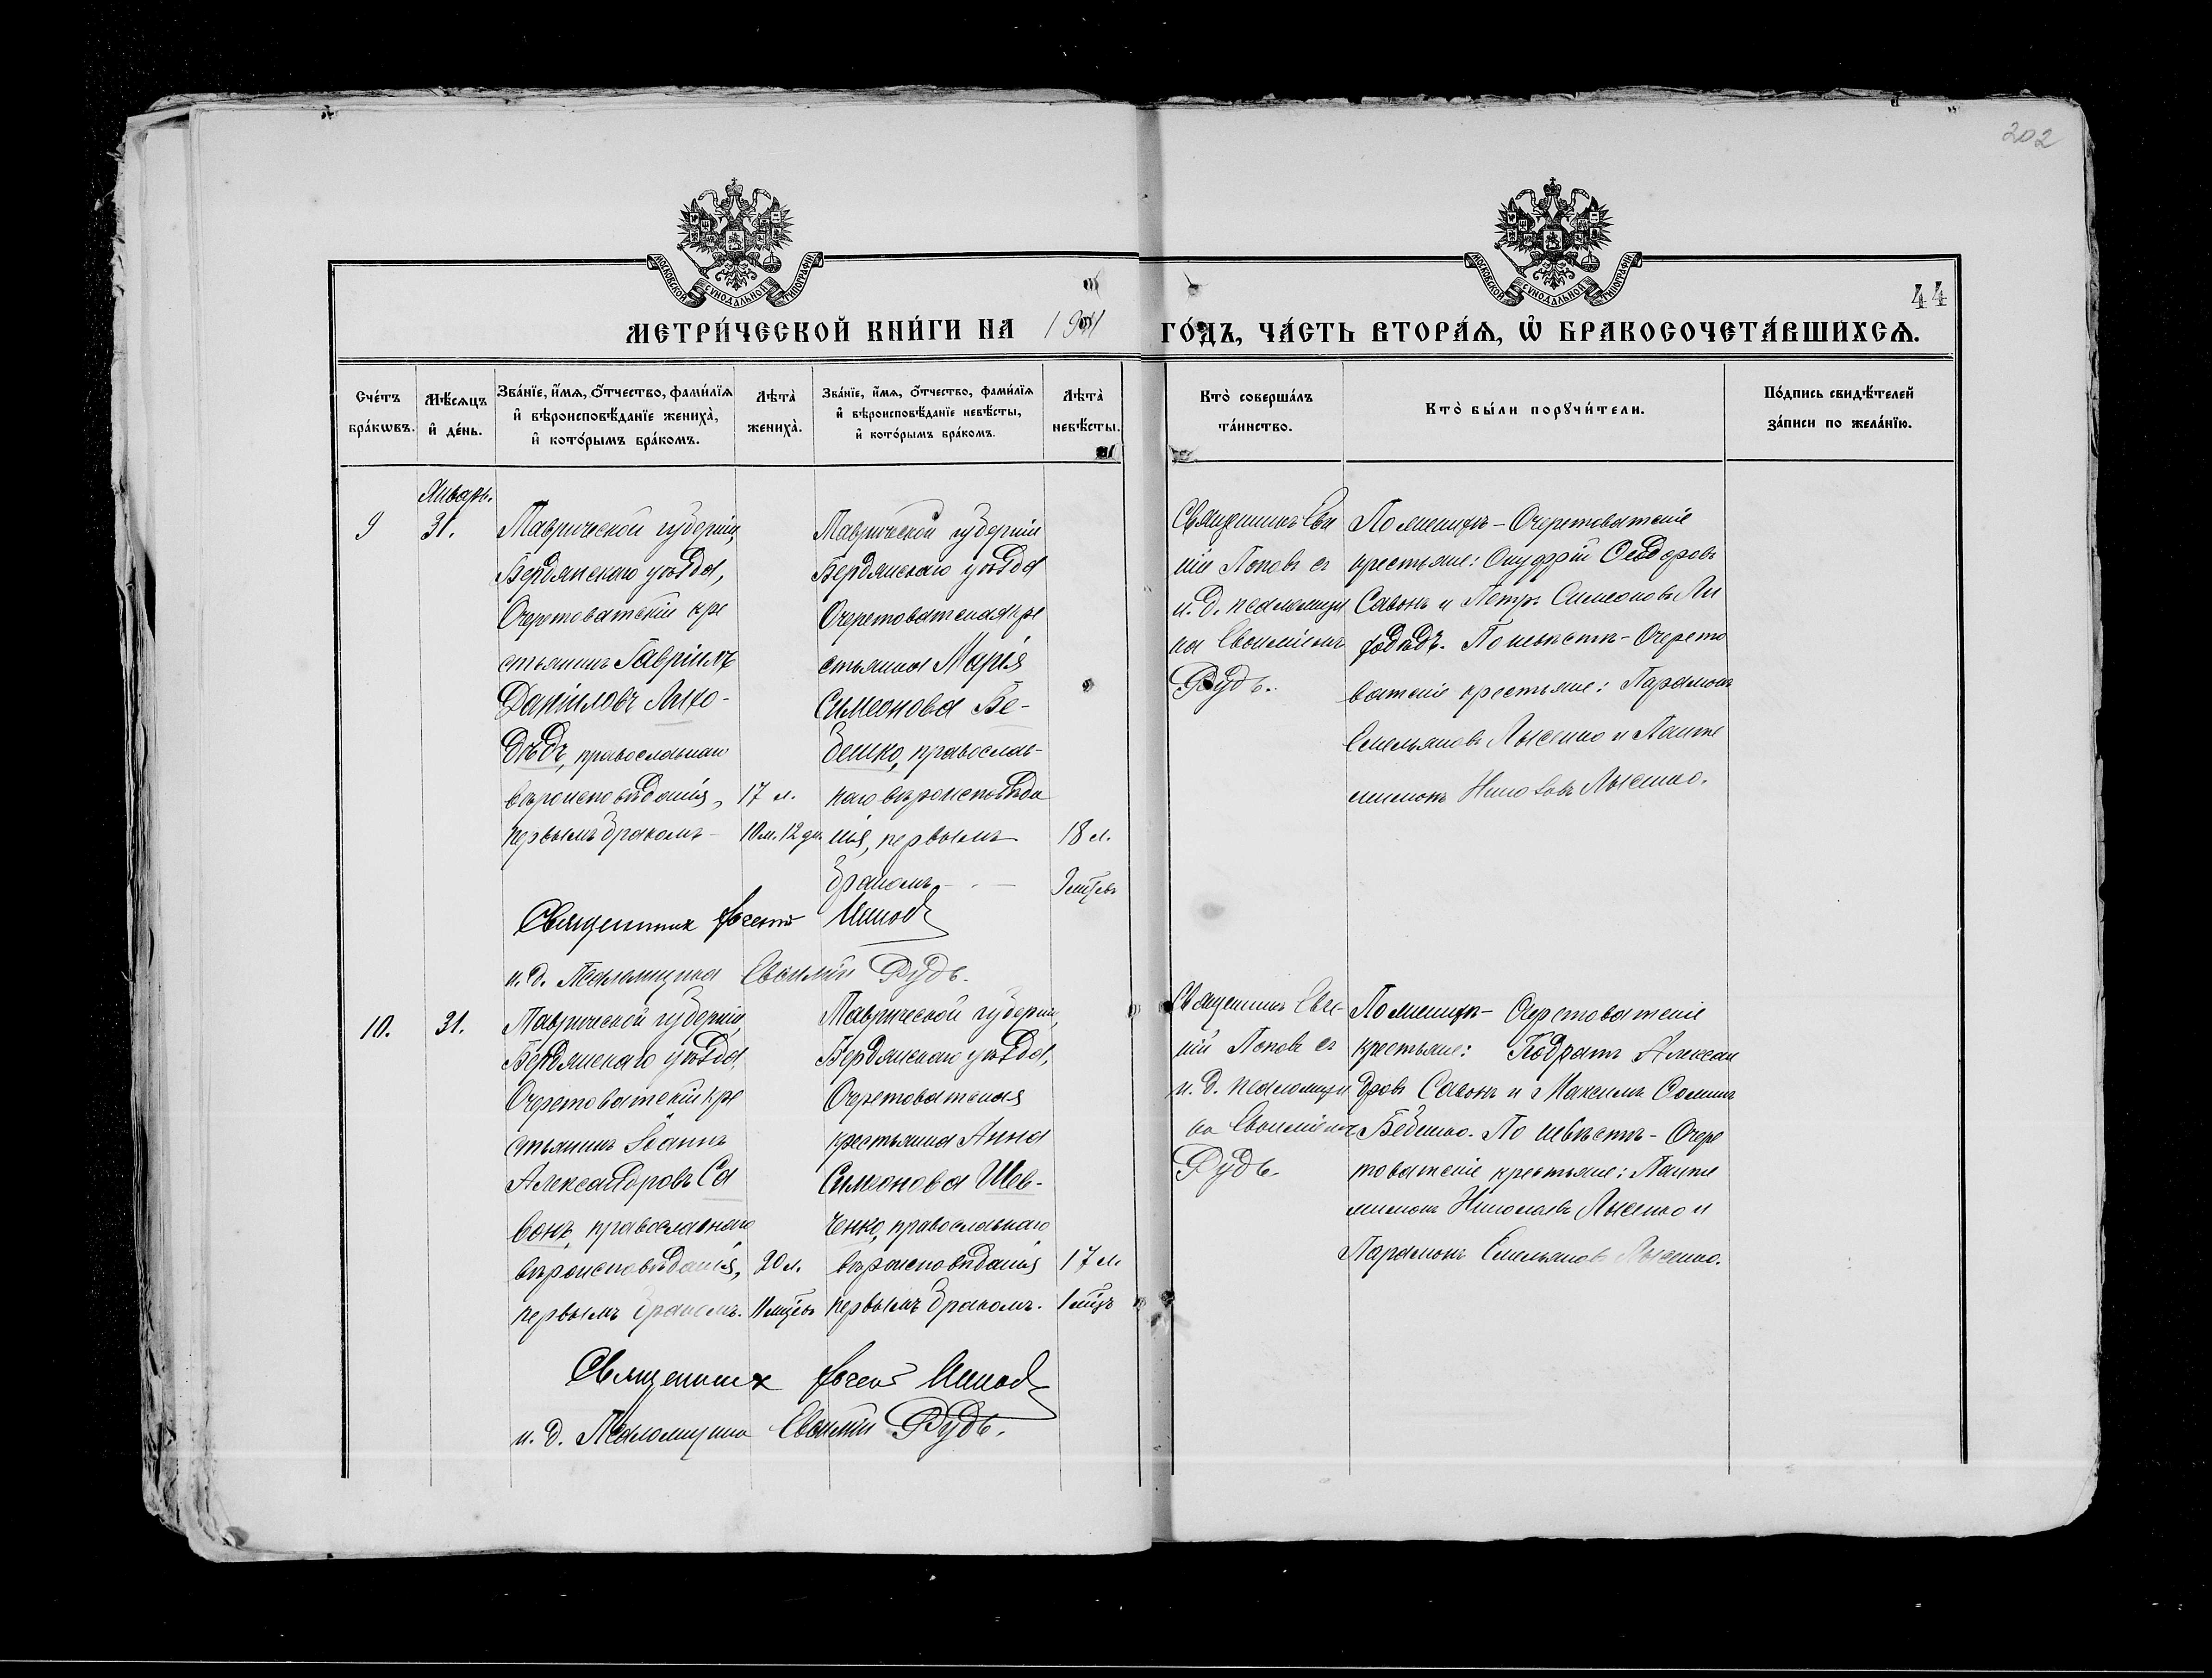 202
МОСКОВСКОЙ СѴНОДАЛЬНОЙ ТИПОГРАФІИ
МОСКОВСКОЙ СѴНОДАЛЬНОЙ ТИПОГРАФІИ
44
МЕТРИ́ЧЕСКОЙ КНИ́ГИ НА
ГО́ДЪ, ЧА́СТЬ ВТОРА́Ѧ, Ѽ БРАКОСОЧЕТА́ВШИХСѦ.
Сче́тъ бра́кѡвъ.
Мѣ́сѧцъ и҆ де́нь.
Зва́нїе, и҆́мѧ, ѻ҆́тчество, фами́лїѧ
и҆ вѣроисповѣ́данїе жениха̀,
и҆ кото́рымъ бра́комъ.
Лѣта̀ жениха̀.
Зва́нїе, и҆́мѧ, ѻ҆́тчество, фами́лїѧ
и҆ вѣроисповѣ́данїе невѣ́сты,
и҆ кото́рымъ бра́комъ.
Лѣта̀ невѣ́сты.
Кто̀ соверша́лъ
та́инство.
Кто̀ бы́ли порꙋчи́тели.
По́дпись свидѣ́телей
за́писи по жела́нїю.
Январь.
9
31.
Таврической губерніи,
Бердянскаго уѣзда,
Очеретоватскій кре
стьянинъ Гавріилъ
Даніиловъ Лихо-
дѣдъ, православнаго
вѣроисповѣданія,
первымъ бракомъ –
17 л.
10 м. 12 дн.
Таврической губерніи
Бердянскаго уѣзда
Очеретоватская кре
стьянка Марія
Симеонова Бе-
зешко, православ-
наго вѣроисповѣда
нія, первымъ
бракомъ
18 л.
9 мѣс̃въ
Священникъ Евге
ній Поповъ съ
и. д. псаломщи
ка Евѳиміемъ
Рудь.
По женихѣ – Очеретоватскіе
крестьяне: Онуфрій Ѳеодоровъ
Савонъ и Петръ Симеоновъ Ли
ходѣдъ. По невѣстѣ – Очерето
ватскіе крестьяне: Парамонъ
Емельяновъ Лысенко и Панте
леимонъ Лысенко.
Священник Евгеній Попов
и. д. Псаломщика Евѳимій Рудь.
10.
31.
Таврической губерніи,
Бердянскаго уѣзда,
Очеретоватскій кре
стьянинъ Іоаннъ
Александровъ Са
вонъ, православнаго
вѣроисповѣданія,
первымъ бракомъ.
20 л.
11 мѣс̃въ
Таврической губерніи,
Бердянскаго уѣзда,
Очеретоватская
крестьянка Анна
Симеонова Шев-
ченко, православнаго
вѣроисповѣданія
первымъ бракомъ.
17 л.
1 мѣс̃цъ
Священникъ Евге-
ній Поповъ съ
и. д. псаломщи
ка Евѳиміемъ
Рудь.
По женихѣ – Очеретоватскіе
крестьяне: Кодратъ Алексан
дровъ Савонъ и Максимъ Ѳоминъ
По невѣстѣ – Очере
товатскіе крестьяне: Панте
леимонъ Николаевъ Лысенко и
Парамонъ Емельяновъ Лысенко.
Священник Евгеній Попов
и. д. Псаломщика Евѳимій Рудь.